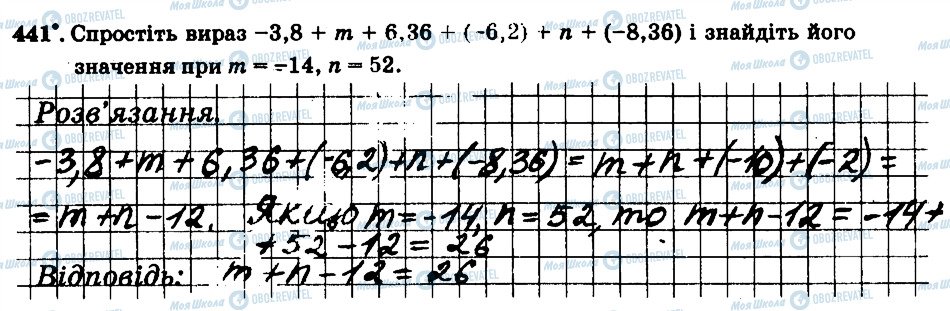 441°. Спростіть вираз –3,8 + m + 6,36 + (–6,2) + n + (–8,36) і знайдіть його
значення при m = –14, n = 52.
Розв'язання.
-3,8+m+6,36+(-6,2)+n+(-8,36)= m+n+(-10)+(-2)=
=m+n-12. Якщо m=-14, n=52, то m+n-12=-14+
+52-12=26
Відповідь: m+n-12=26